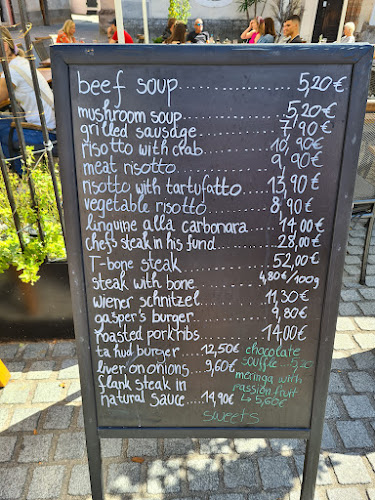 beef soup ............ 5,20€
mushroom soup ........ 5,20€
grilled sausage ........ 7,90€
risotto with crab ........ 10,90€
meat risotto ........ 9,90€
risotto with tartuffatto ........ 13,90€
vegetable risotto ........ 8,90€
linguine alla carbonara ... 14,00€
chef's steak in his fund ...... 28,00€
T-bone steak ........ 52,00€
steak with bone ........ 4,80€/100g
wiener schnitzel ........ 11,30€
gašper's burger ........ 9,80€
roasted pork ribs ........ 14,00€
ta hud burger ...... 12,50€
liver on onions .... 9,60€
flank steak in
natural sauce ... 11,90€
chocolate
souffle ..... 5,20
meringa with
passion fruit
↳ 5,60€
sweets